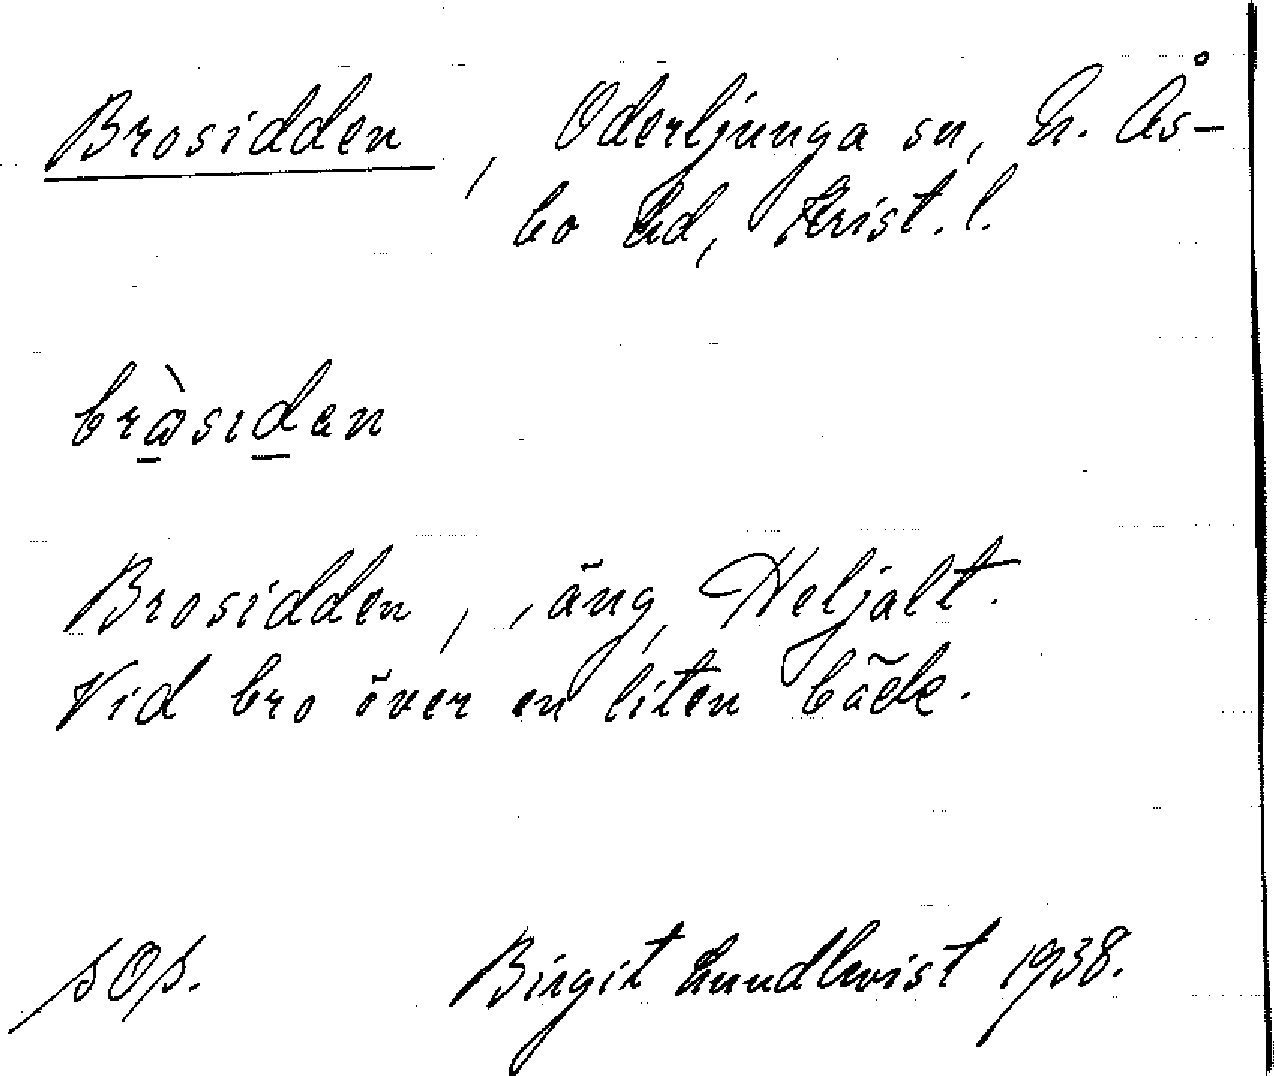 Brosidden, Oderljunga sn, N. Ås-
bo hd, Krist. l.
bròsidan
Brosidden, äng, Heljalt.
Vid bro över en liten bäck.
Birgit Lundkvist 1938.